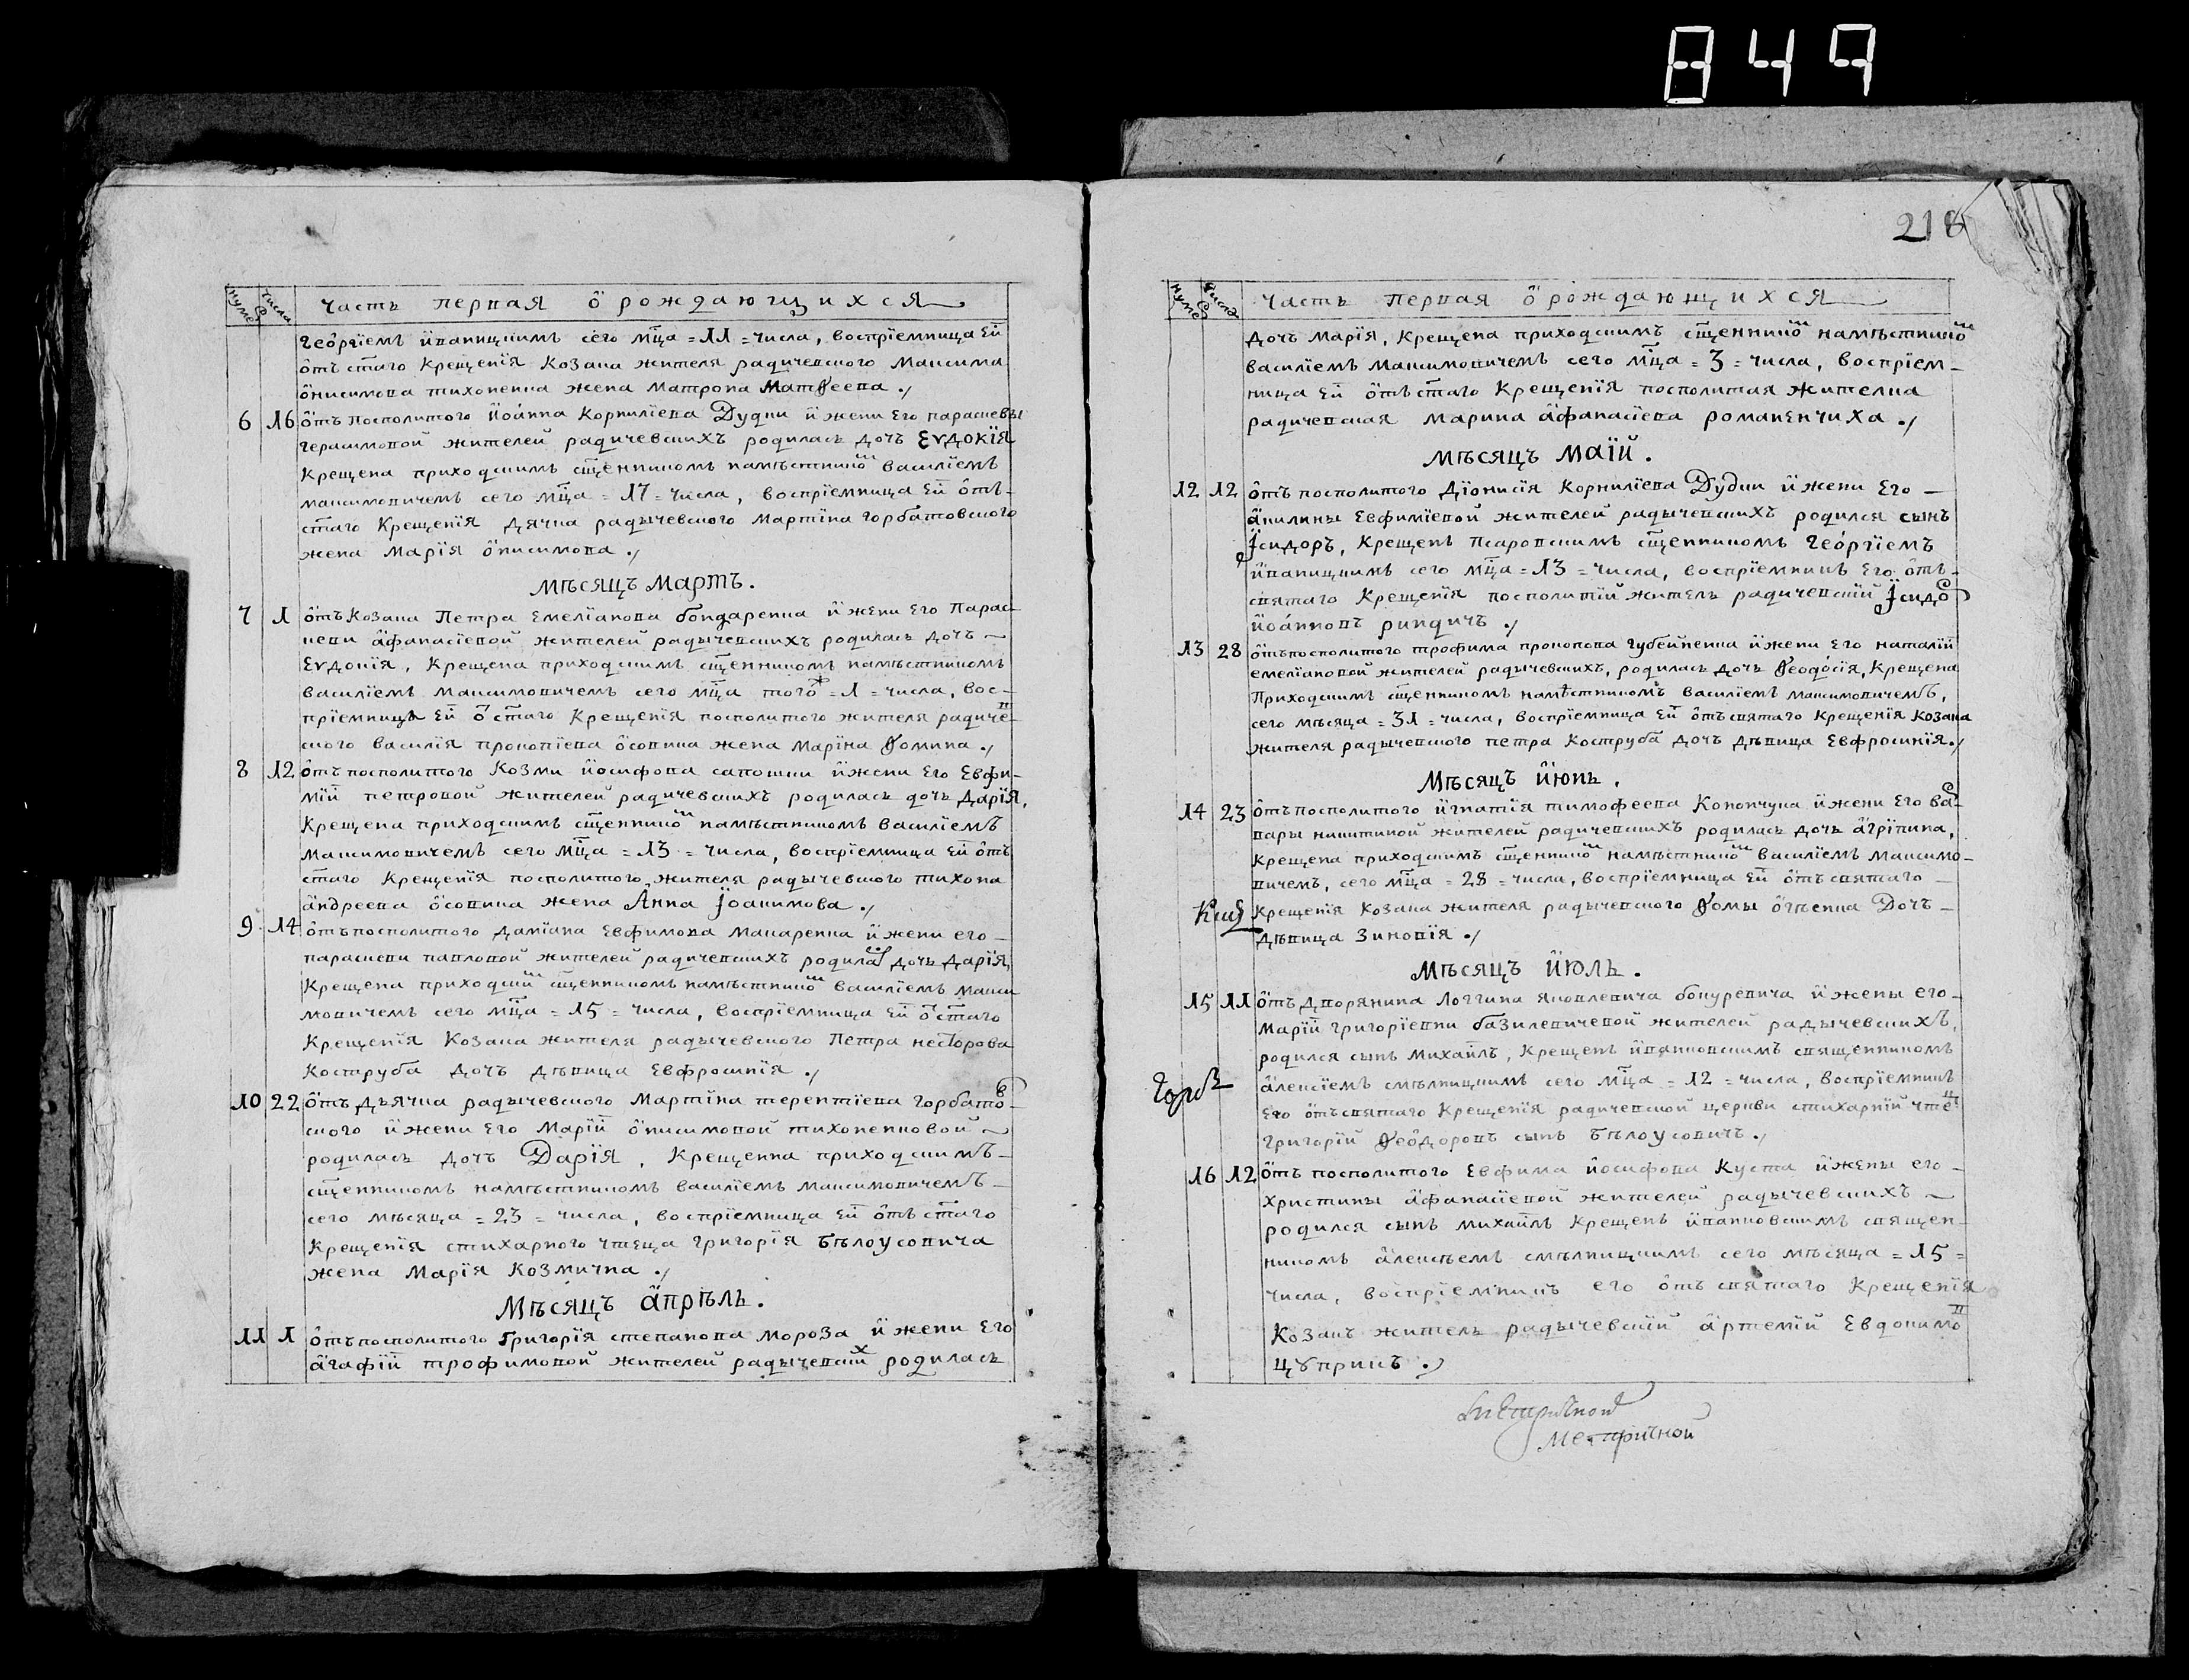 849
218
нумеръ числа часть первая ѡ рождающихся
Георгіемъ Иваницкимъ сего мца = 11 = числа, воспріемница ей
отъ стаго крещенія козака жителя радичевского Максима
Онисимова Тихоненка жена Матрона Матѳеева ./
6 16 отъ посполитого Іоанна Корниліева Дудки и жени его Параскевы
Герасимовой жителей радичевскихъ родилась дочь Еѵдокія
крещена приходскимъ сщенникомъ намѣстнико Василіемъ
Максимовичемъ сего мца = 17 = числа, воспріемница ей отъ-
стаго крещенія дячка радычевского Мартіна Горбатовского
жена Марія Онисимова ./
мѣсяцъ Мартъ.
7 1 отъ козака Петра Емеліанова Бондаренка и жени его Парас
кеви Афанасіевой жителей радычевскихъ родилась дочь ~
Еѵдокія, крещена приходскимъ сщенникомъ намѣстникомъ
Василіемъ Максимовичемъ сего мца того ж = 1 = числа, вос-
пріемница ей о стаго крещенія посполитого жителя радиче-
ского Василія Прокопіева Особика жена Маріна Ѳомина ./
8 12 отъ посполитого Козми Иосифова Сапошки и жени его Евфи-
мій Петровой жителей радичевскихъ родилась дочь Дарія,
крещена приходскимъ сщеннико намѣстникомъ Василіемъ
Максимовичемъ сего мца = 13 = числа, воспріемница ей отъ
стаго крещенія посполитого жителя радычевского Тихона
Андреева Особика жена Анна Іоакимова ./
9 14 отъ посполитого Даміана Евфимова Макаренка и жени его –
Параскеви Павловой жителей радичевскихъ родилас дочь Дарія,
крещена приходски сщенникомъ намѣстнико Василіемъ Макси
мовичемъ сего мца = 15 = числа, воспріемница ей о стаго
крещенія козака жителя радычевского Петра Несторова
Коструба дочъ дѣвица Евфросинія ./
10 22 отъ дьячка радычевского Мартіна Терентіева Горбатов-
ского и жени его Марій Онисимовой Тихоненковой ~
родилась дочъ Дарія, крещенна приходскимъ –
сщенникомъ намѣстникомъ Василіемъ Максимовичемъ –
сего мѣсяца = 23 = числа, воспріемница ей отъ стаго
крещенія стихарного чтеца Григорія Бѣлоусовича
жена Марія Козмична ./
Мѣсяцъ Апрѣль.
11 1 отъ посполитого Григорія Степанова Мороза и жени его
Агафій Трофимовой жителей радычевских родилась
нумеръ числа часть первая ѡ рождающихся
дочь Марія, крещена приходскимъ сщеннико намѣстнико
Василіемъ Максимовичемъ сего мца = 3 = числа, воспріем-
ница ей отъ стаго крещенія посполитая жителка
радичевская Марина Афанасіева Романенчиха ./
мѣсяцъ Маій.
12 12 отъ посполитого Діонисія Корниліева Дудки и жени его –
Акилины Евфиміевой жителей радычевскихъ родился сынъ
Ісидоръ, крещенъ псаровскимъ сщенникомъ Георгіемъ
Иваницкимъ сего мца = 13 = числа, воспріемникъ его отъ-
святаго крещенія посполитій житель радичевскій Ісидо
Іоанновъ Риндичъ ./
13 28 отъ посполитого Трофима Прокопова Губейненка и жени его Наталій
Емеліановой жителей радычевскихъ, родилась дочъ Ѳеодосія, крещена
приходскимъ сщенникомъ намѣстникомъ Василіемъ Максимовичемъ,
сего мѣсяца = 31 = числа, воспріемница ей отъ святаго крещенія козака
жителя радычевского Петра Коструба дочъ дѣвица Евфросинія ./
Мѣсяцъ Июнь.
14 23 отъ посполитого Игнатія Тимофеева Конончука и жени его Ва-
вары Никитиной жителей радичевскихъ родилась дочь Агріпина,
крещена приходскимъ сщеннико намѣстнико Василіемъ Максимо-
вичемъ, сего мца = 28 = числа, воспріемница ей отъ святаго –
крещенія козака жителя радычевского Ѳомы Огѣенка дочъ –
дѣвица Зиновія ./
Мѣсяцъ Июль.
15 11 отъ дворянина Логгина Яковлевича Бокуревича и жены его –
Марій Григоріевни Базилевичевой жителей радычевскихъ,
родился сынъ Михаилъ, крещенъ ивянковскимъ священникомъ
Алексіемъ Смѣлницкимъ сего мца = 12 = числа, воспріемникъ
его отъ святаго крещенія радичевской церкви стихарній чтец
Григорій Ѳеодоровъ сынъ Бѣлоусовичъ ./
16 12 отъ посполитого Евфима Иосифова Куста и жены его –
Христины Афанасіевой жителей радычевскихъ ~
родился сынъ Михаилъ крещенъ иванковскимъ священ-
никомъ Алексѣемъ Смѣлницкимъ сего мѣсяца = 15 =
числа, воспріемникъ его отъ святаго крещенія
козакъ житель радычевскій Артемій Евдокимо
Цуприкъ ./
Метричной